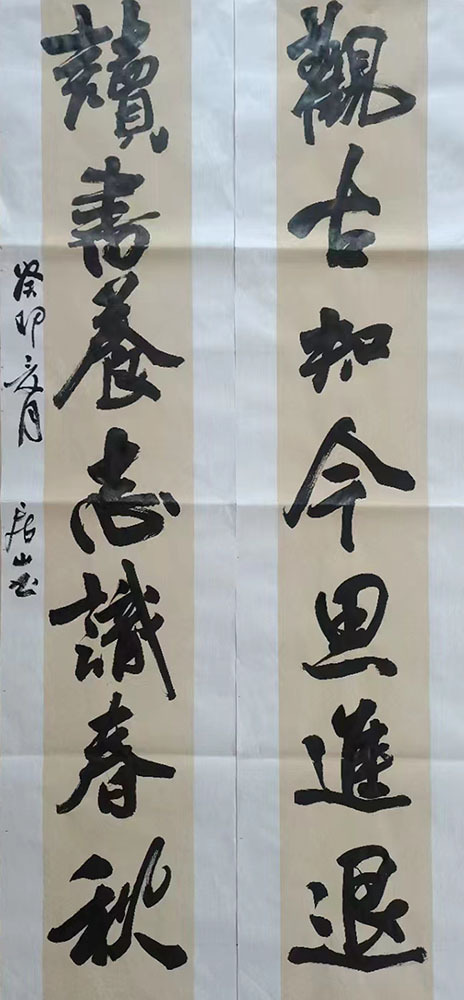 觀古知今思進退
讀書養志識春秋
癸卯二月
居山书